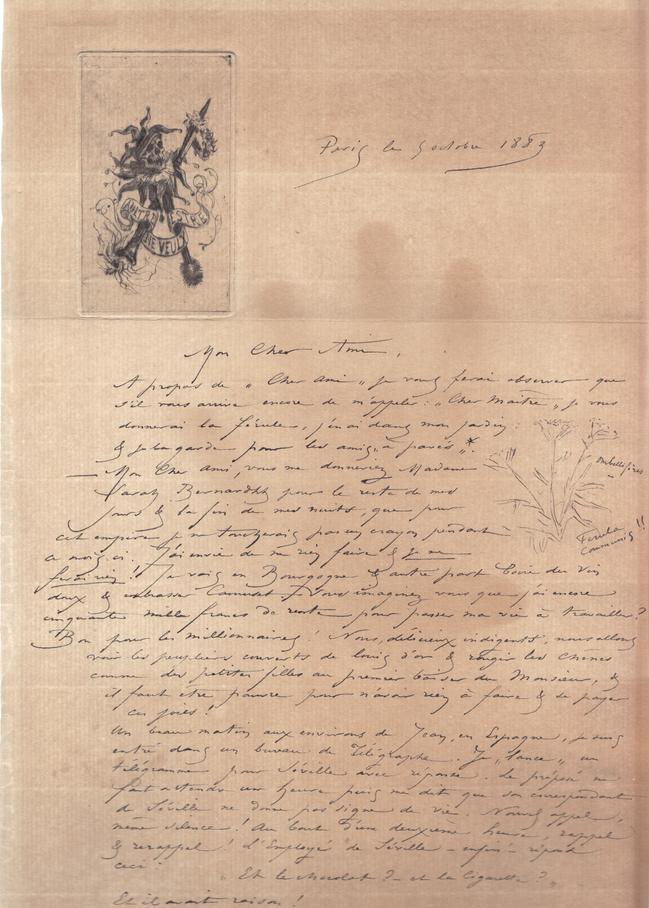 AULTRE NE VEULX ESTRE
Paris le 9 octobre 1883
Mon Cher Ami,
A propos de „ Cher Ami „ je vous ferai observer que
s'il vous arrive encore de m'appeler : „ Cher Maître „ je vous
donnerai la férule, j'en ai dans mon jardin;
& je la garde pour les amis
ombellifères
Ferula
Communis !!
— Mon Cher Ami, vous me donneriez Madame
Sarah Bernardht pour le reste de mes
jours & la fin de mes nuits, que pour
cet empire je ne toucherais pas un crayon pendant
ce mois, ci. J'ai envie de ne rien faire & je ne
ferai rien !! Je vais en Bourgogne & autre part boire du vin
doux & embrasser Camuset. Vous imaginez vous que j'ai encore
cinquante mille francs de rente pour passer ma vie à travailler ?
Bon pour les millionnaires ! Nous, délicieux indigents, nous allons
voir les peupliers couverts de louis d'or & rougir les chênes
comme des petites filles au premier baiser du Monsieur, &
il faut être pauvre pour n'avoir rien à faire & se payer
ces joies !
Un beau matin aux environs de Jaen, en Espagne, je suis
entré dans un bureau de Télégraphe. Je „lance„ un
télégramme pour Séville avec réponse. Le préposé me
fait attendre une heure puis me dit que son correspondant
de Séville ne donne pas signe de vie. Nouvel appel,
même silence ! Au bout d'une deuxième heure, rappel
& rerappel ! L'Employé de Séville – enfin – répond
ceci :
„ Et le chocolat ? – et la Cigarette ? „
Et il avait raison !